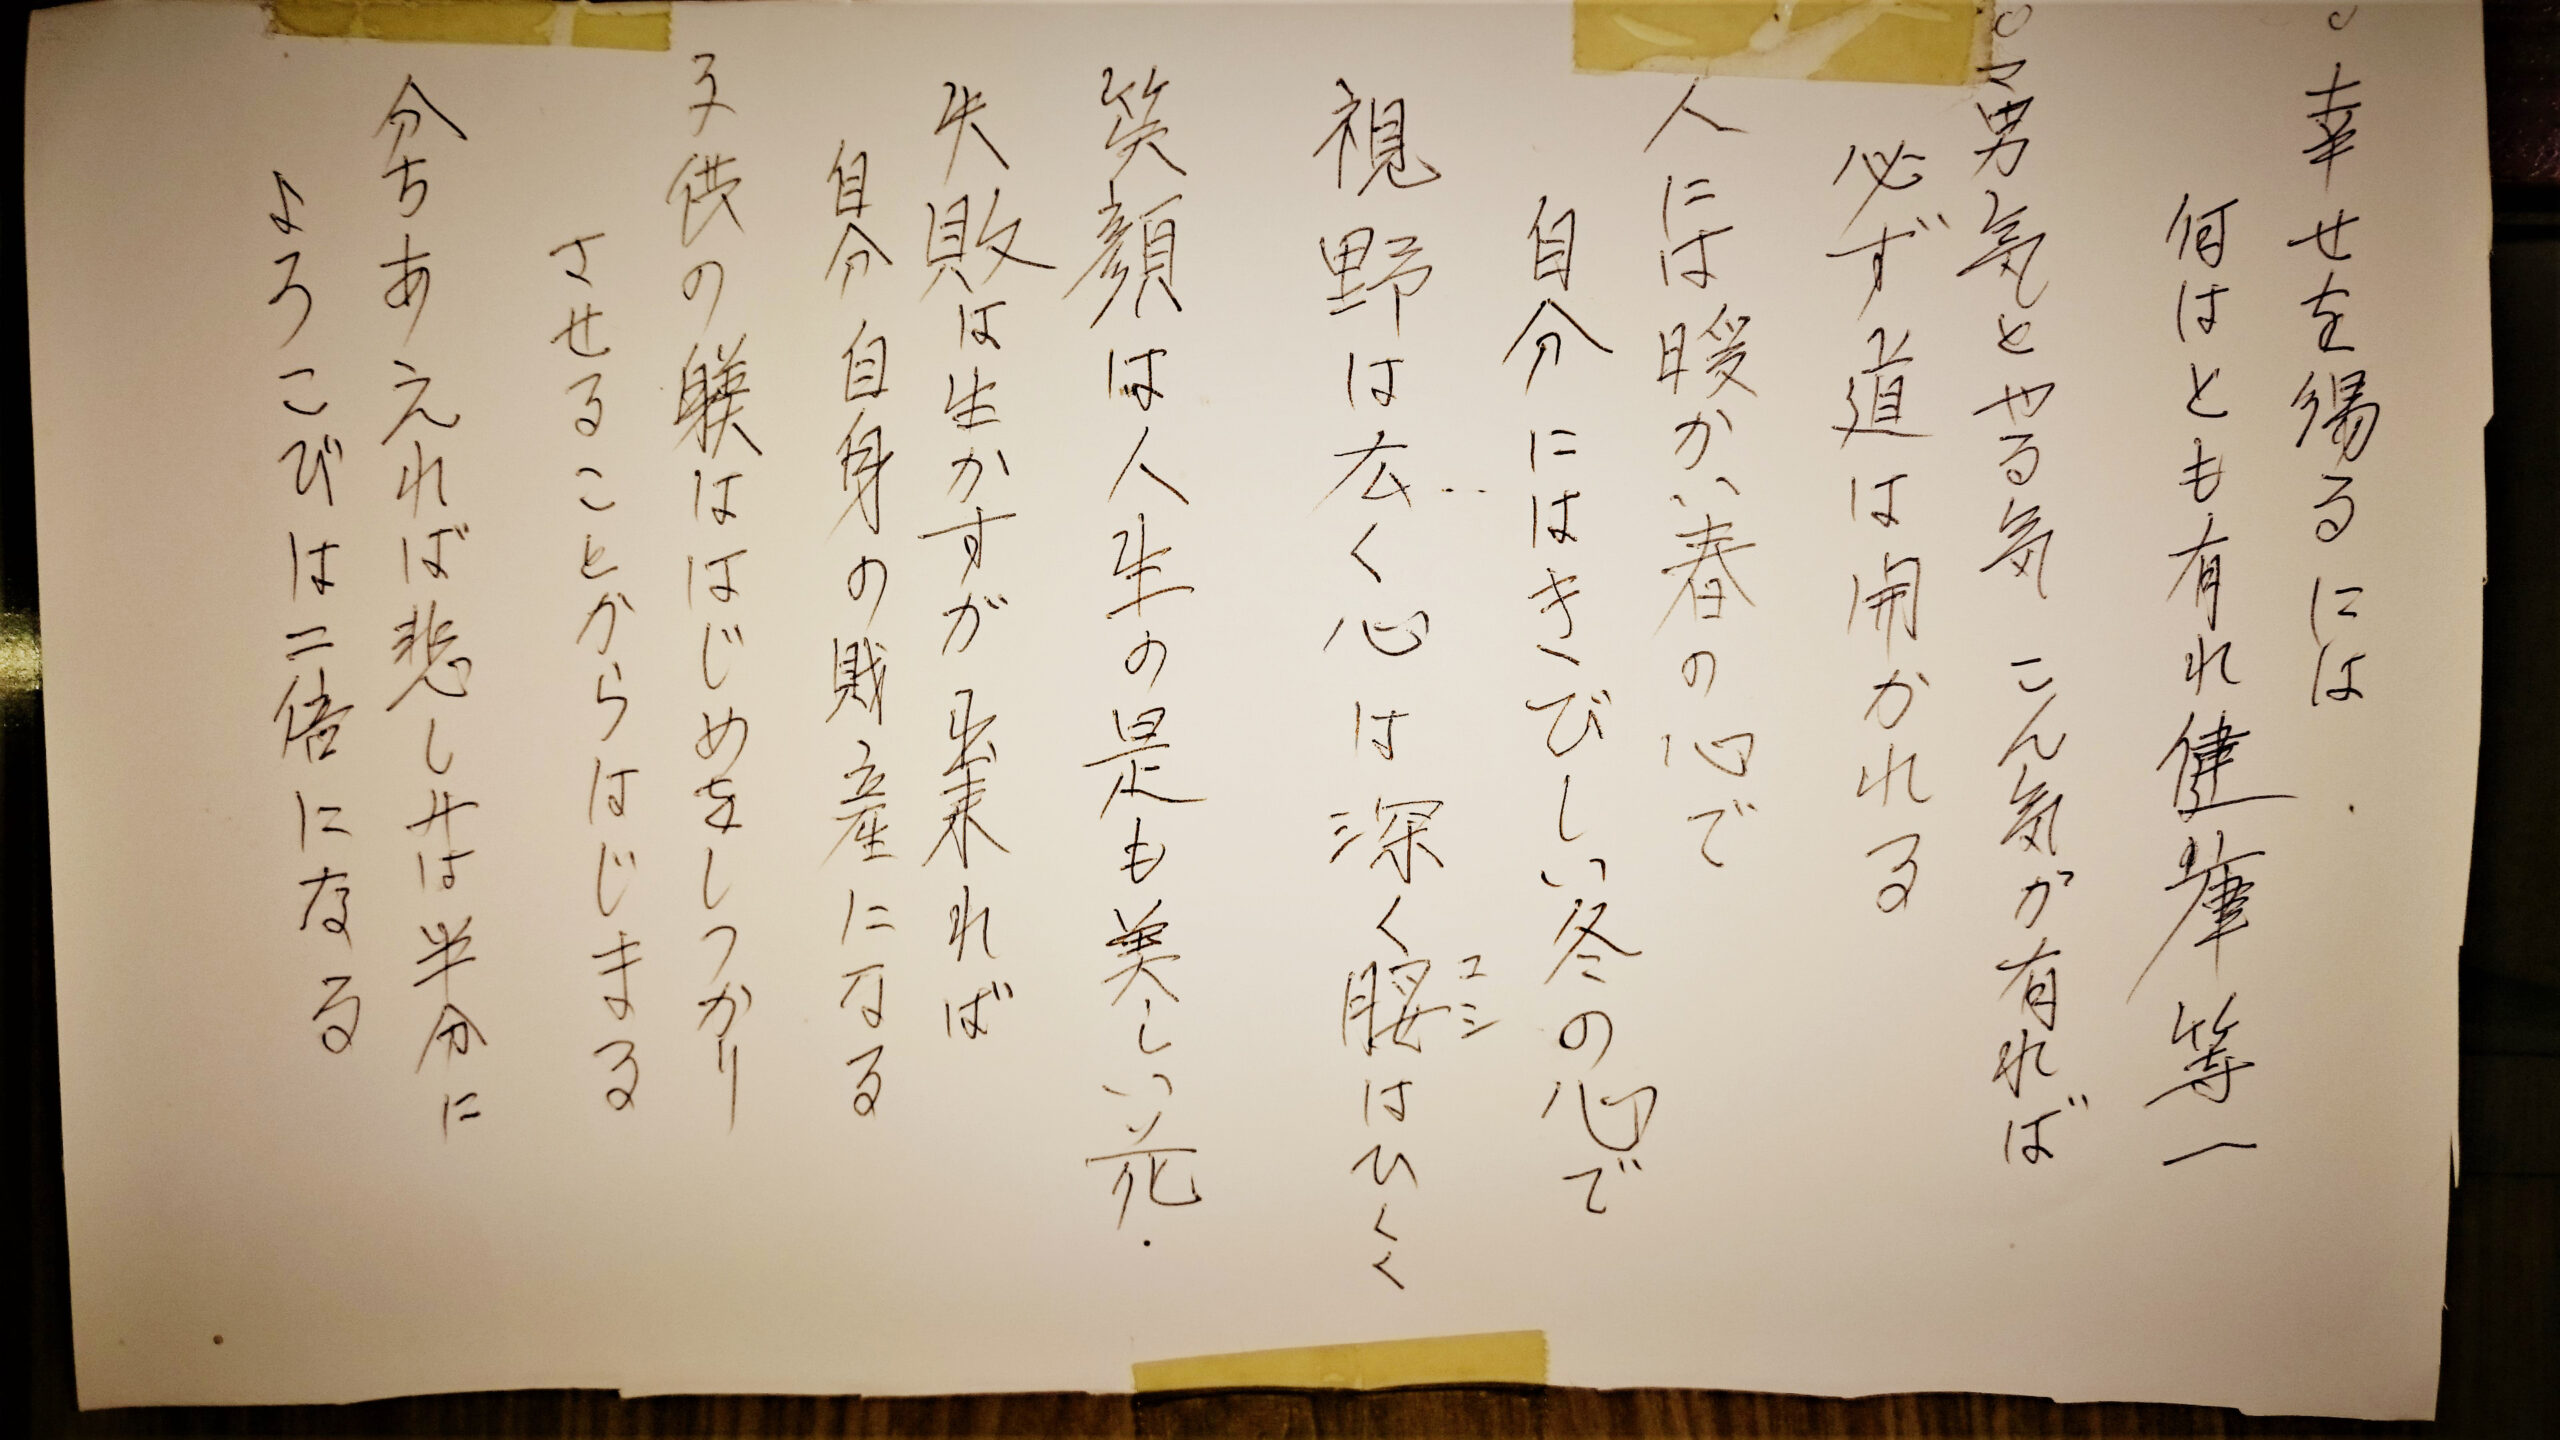 。幸せを得るには
何はとも有れ健康等一
。勇気とやる気 こん気が有れば
必ず道は開かれる
人には暖かい春の心で
自分にはきびしい冬の心で
視野は広く心は深く腰はひくく
コシ
笑顔は人生の是も美しい花.
失敗は生かすが出来れば
自分自身の財産になる
子供の躾ははじめをしつかり
させることからはじまる
分ちあえれば悲しみは半分に
よろこびは二倍になる